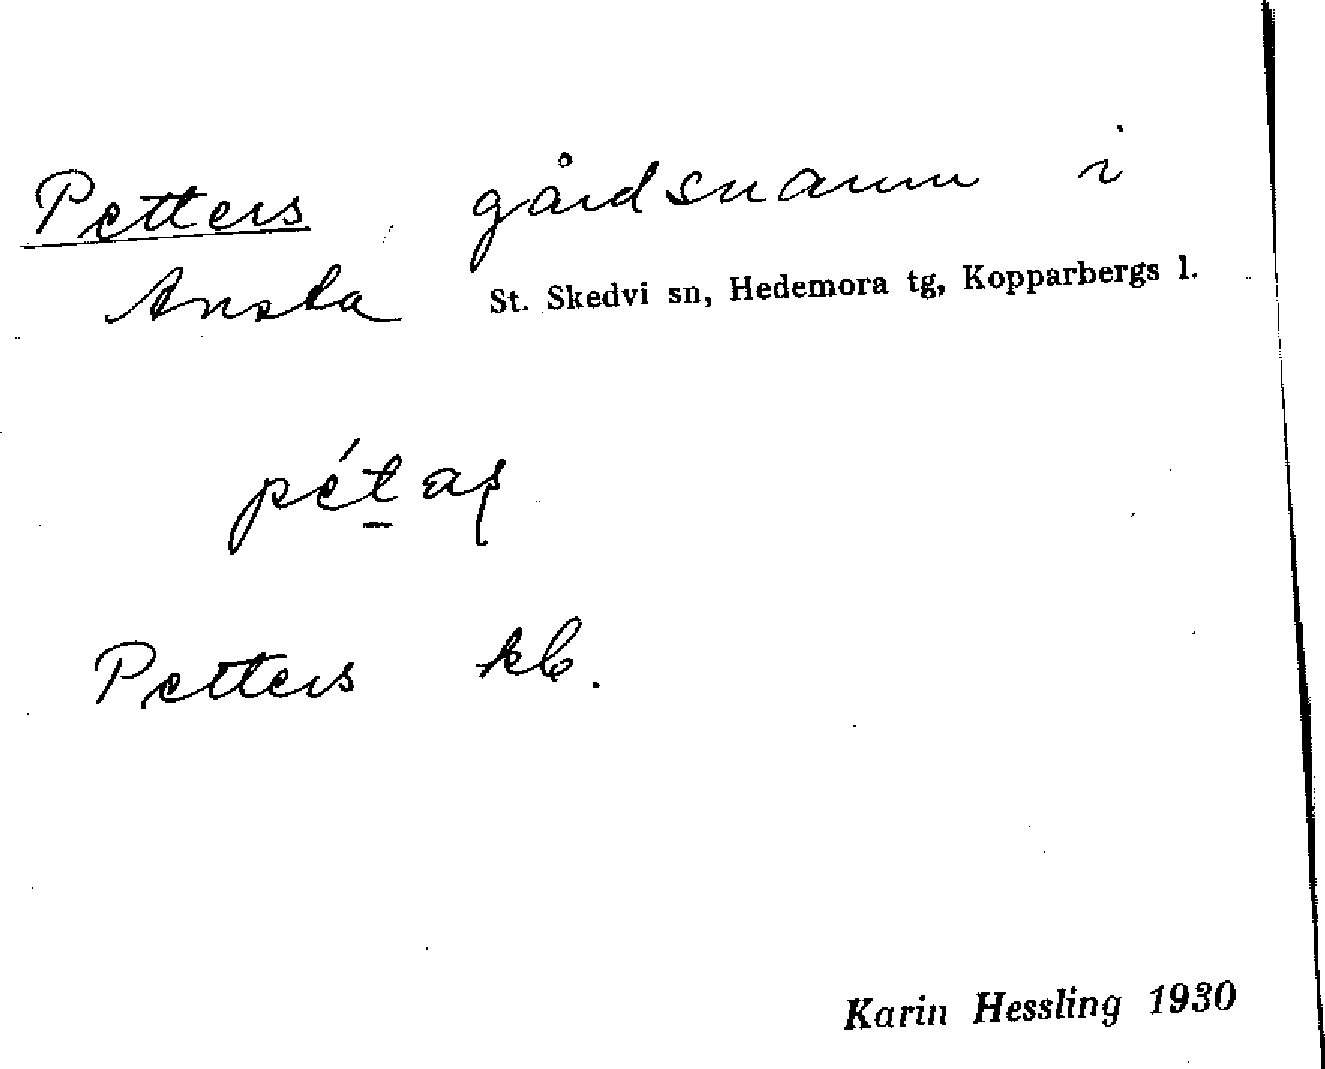 Petters gårdsnamn i
Ansta St. Skedvi sn, Hedemora tg, Kopparbergs l.
pét̲as̩
Petters kb.
Karin Hessling 1930